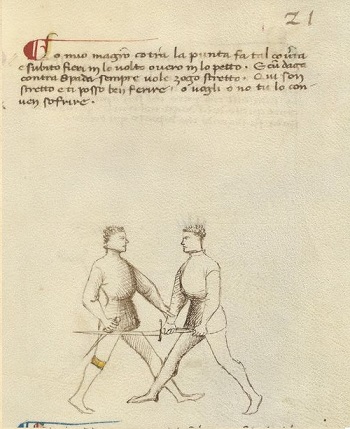 21
Lo mio magistro contra la punta fa tal coverta
e subito fieri in lo volto overo in lo petto. E cum daga
contra spada sempre vole zogo stretto. Qui son
stretto e ti posso ben ferire, o vogli o no tu lo con-
ven sofrire.